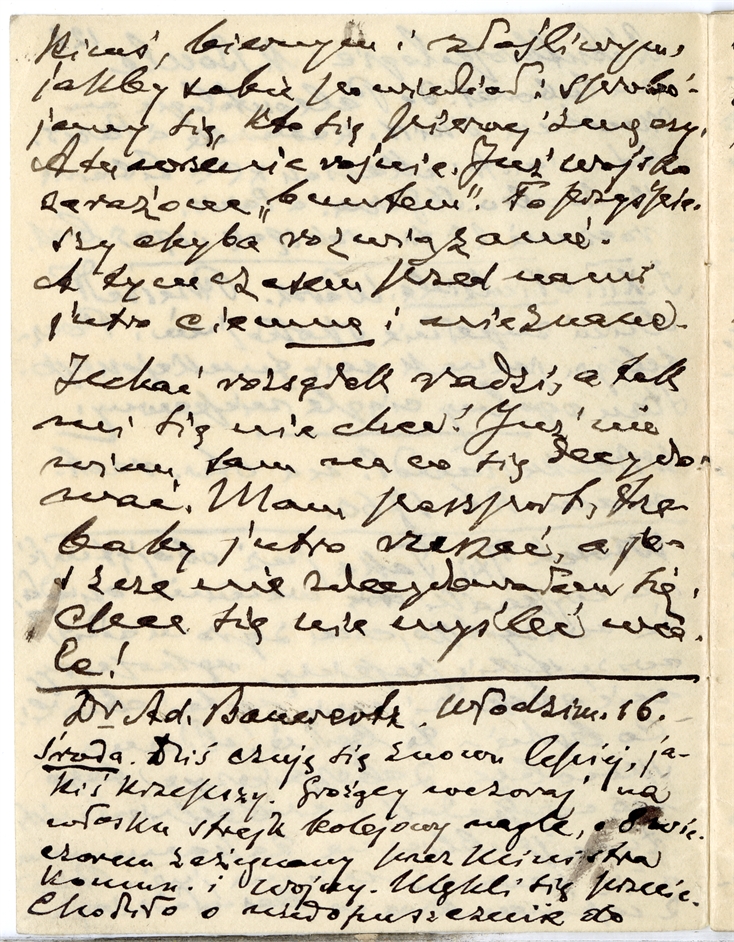 kimś, biernym i złośliwym,
jakby sobie powiedział: spróbuj-
jemy się, kto się pierwej zmęczy.
A tu wrzenie rośnie. Już wojsko
zarażone „buntem”. To przyśpie-
szy chyba rozwiązanie.
A tymczasem przed nami
jutro ciemne i nieznane.
Jechać rozsądek radzi, a tak
mi się nie chce! Już nie
wiem, sam na co się decydo-
wać. Mam paszport, trze-
baby jutro ruszać, a je-
szcze nie zdecydowałem się.
Chce się nie myśleć wca-
le!
Dr. Ad. Włodzim. 16.
Środa. Dziś czuję się znowu lepiej, ja-
kiś krzepszy. Grożący wczoraj na
włosku strejk kolejowy nagle, o 8 wie-
czorem zażegnany przez Ministra
Komun. i Wojny. Ulękli się przecie.
Chodziło o niedopuszczenie do